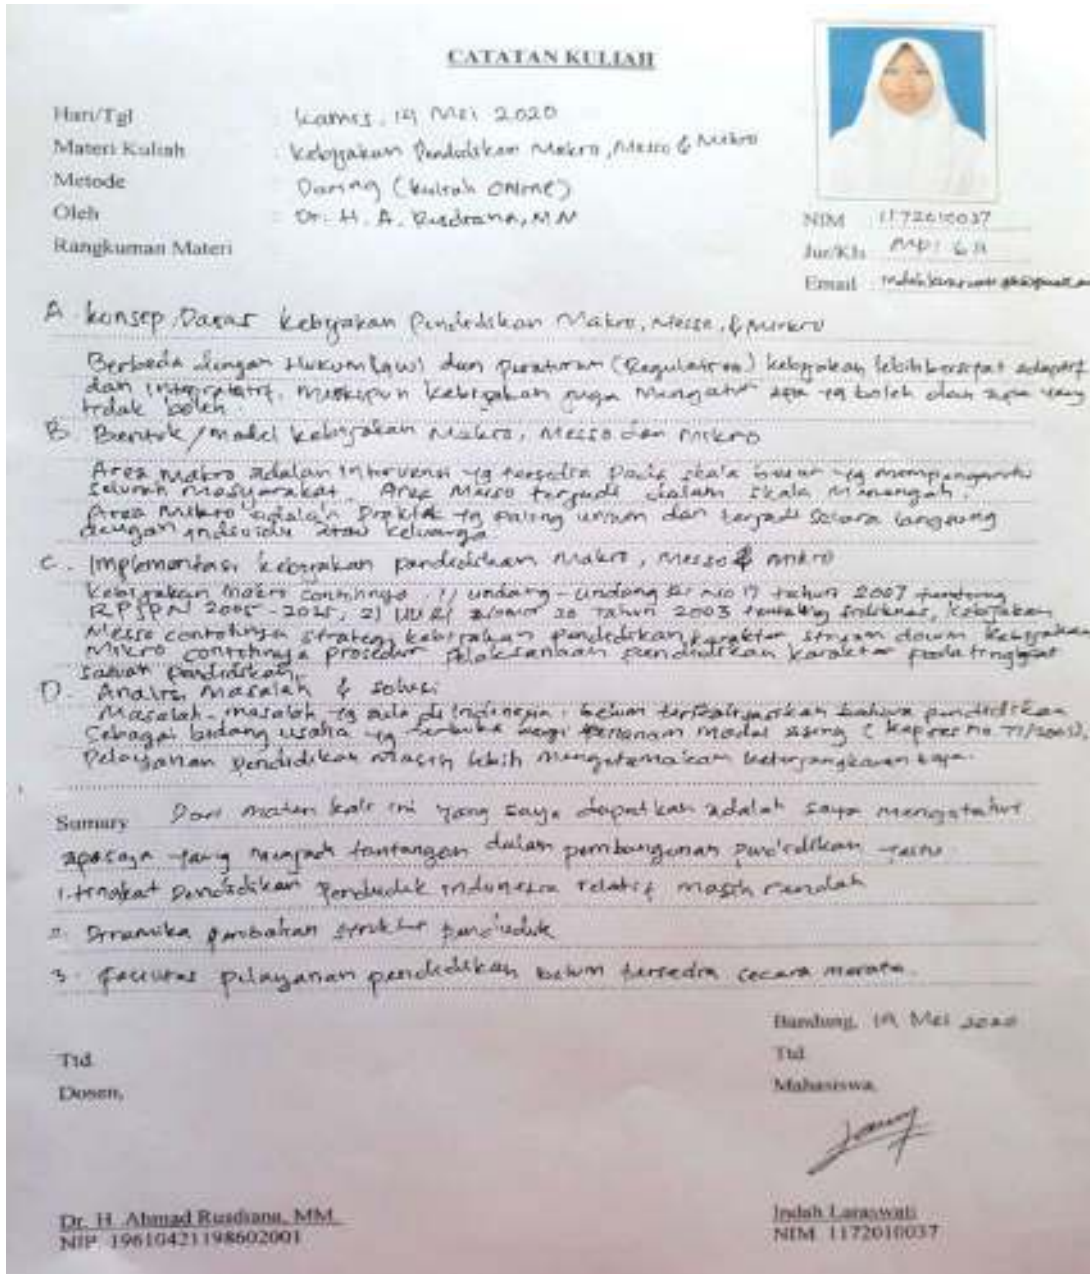 CATATAN KULIAH
Hari/Tgl : Kamis, 14 Mei 2020
Materi Kuliah : Kebijakan Pendidikan Makro, Messo & Mikro
Metode : Daring (kuliah online)
Oleh : Dr. H. A. Rusdiana, MM
Rangkuman Materi
NIM : 1172010037
Jur/Kls : MPI 6A
Email :
A. Konsep Dasar Kebijakan Pendidikan Makro, Messo, & Mikro
Berbeda dengan Hukum (law) dan peraturan (Regulation) kebijakan lebih bersipat adaptif
dan interpretatif, meskipun kebijakan juga mengatur apa yg boleh dan apa yang
tidak boleh.
B. Bentuk/model kebijakan Makro, Messo dan Mikro
Area makro adalah intervensi yg tersedia pada skala besar yg mempengaruhi
seluruh masyarakat. Area Messo terjadi dalam skala Menengah.
Area Mikro adalah Praktek yg paling umum dan terjadi secara langsung
dengan individu atau keluarga.
C. Implementasi kebijakan pendidikan Makro, Messo & mikro
Kebijakan Makro contohnya 1) undang-undang RI No 17 tahun 2007 tentang
RPJPN 2005-2025, 2) UU RI Nomor 20 Tahun 2003 tentang sisdiknas, kebijakan
Messo contohnya strategi kebijakan pendidikan karakter stream down kebijakan
Mikro contohnya prosedur pelaksanaan pendidikan karakter pada tingkat
satuan pendidikan.
D. Analisi Masalah & solusi
Masalah-masalah yg ada di Indonesia: belum bahwa pendidikan
sebagai bidang usaha yg terbuka bagi penanam modal asing (Kepres no 77/2007),
Pelayanan pendidikan Masih lebih Mengutamakan keterjangkauan saja.
Sumary Dari materi kali ini yang saya dapatkan adalah saya mengetahui
apa saja yang menjadi tantangan dalam pembangunan pendidikan yaitu
1. tingkat Pendidikan Penduduk indonesia relatif masih rendah
2. Dinamika perubahan struktur penduduk
3. fasilitas pelayanan pendidikan belum tersedia secara merata.
Bandung, 14 Mei 2020
Ttd. Ttd
Dosen, Mahasiswa,
Dr. H. Ahmad Rusdiana, MM. Indah Laraswati
NIP. 19610421198602001 NIM 1172010037